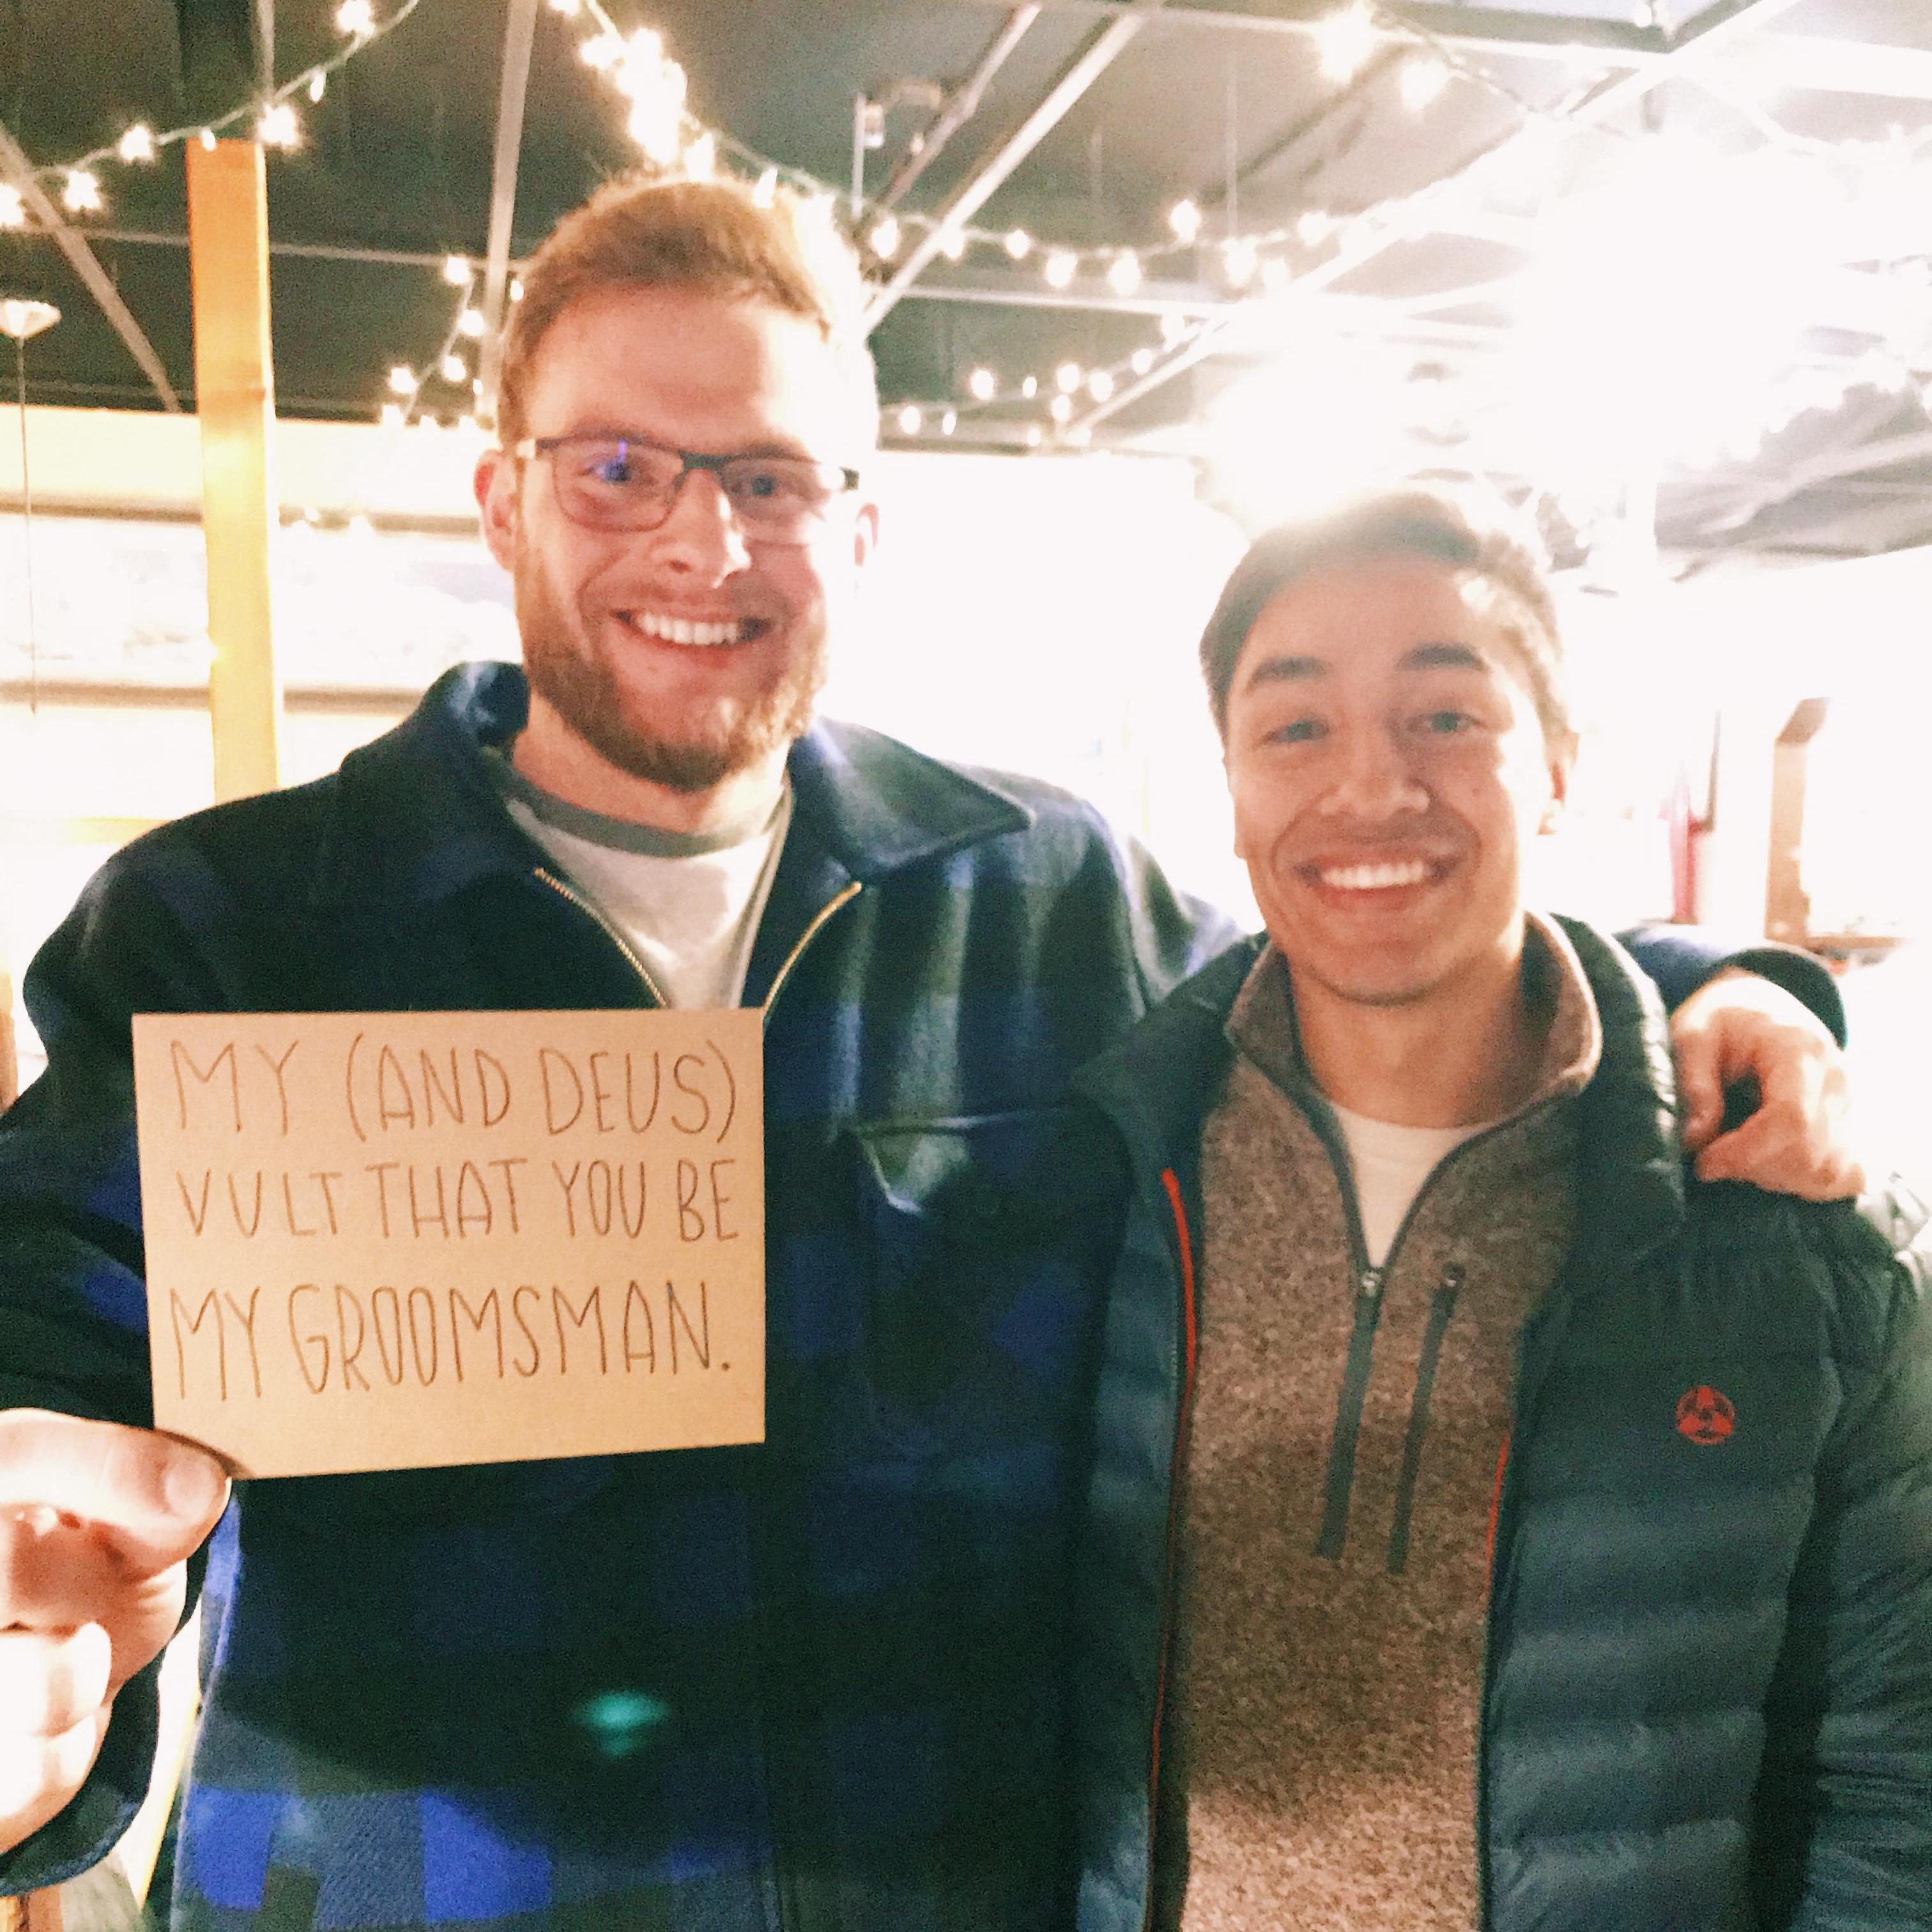 MY (AND DEUS)
VULT THAT YOU BE
MY GROOMSMAN.